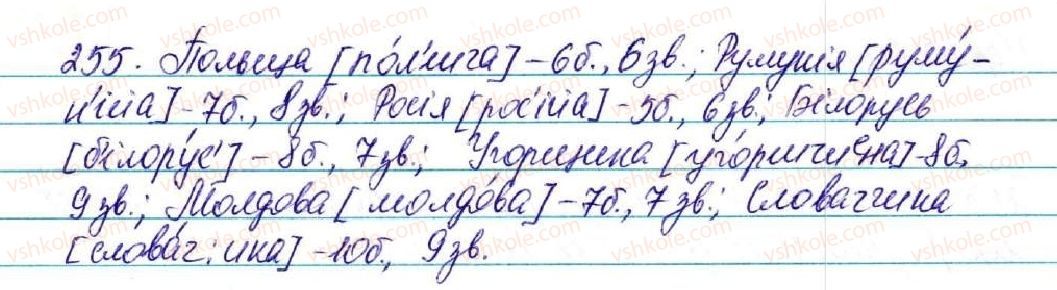 255. Польща [по́л'шча] – 6б., 6зв.; Румунія [руму́-
н'ійа] – 7б., 8зв.; Росія [рос'ійа] – 5б., 6зв.; Білорусь
[б'ілору́с'] – 8б., 7зв.; Угорщина [уго́ршчиᵉна] – 8б,
9зв.; Молдова [молдо́ва] – 7б., 7зв.; Словаччина
[слова́ч:ина] – 10б., 9зв.